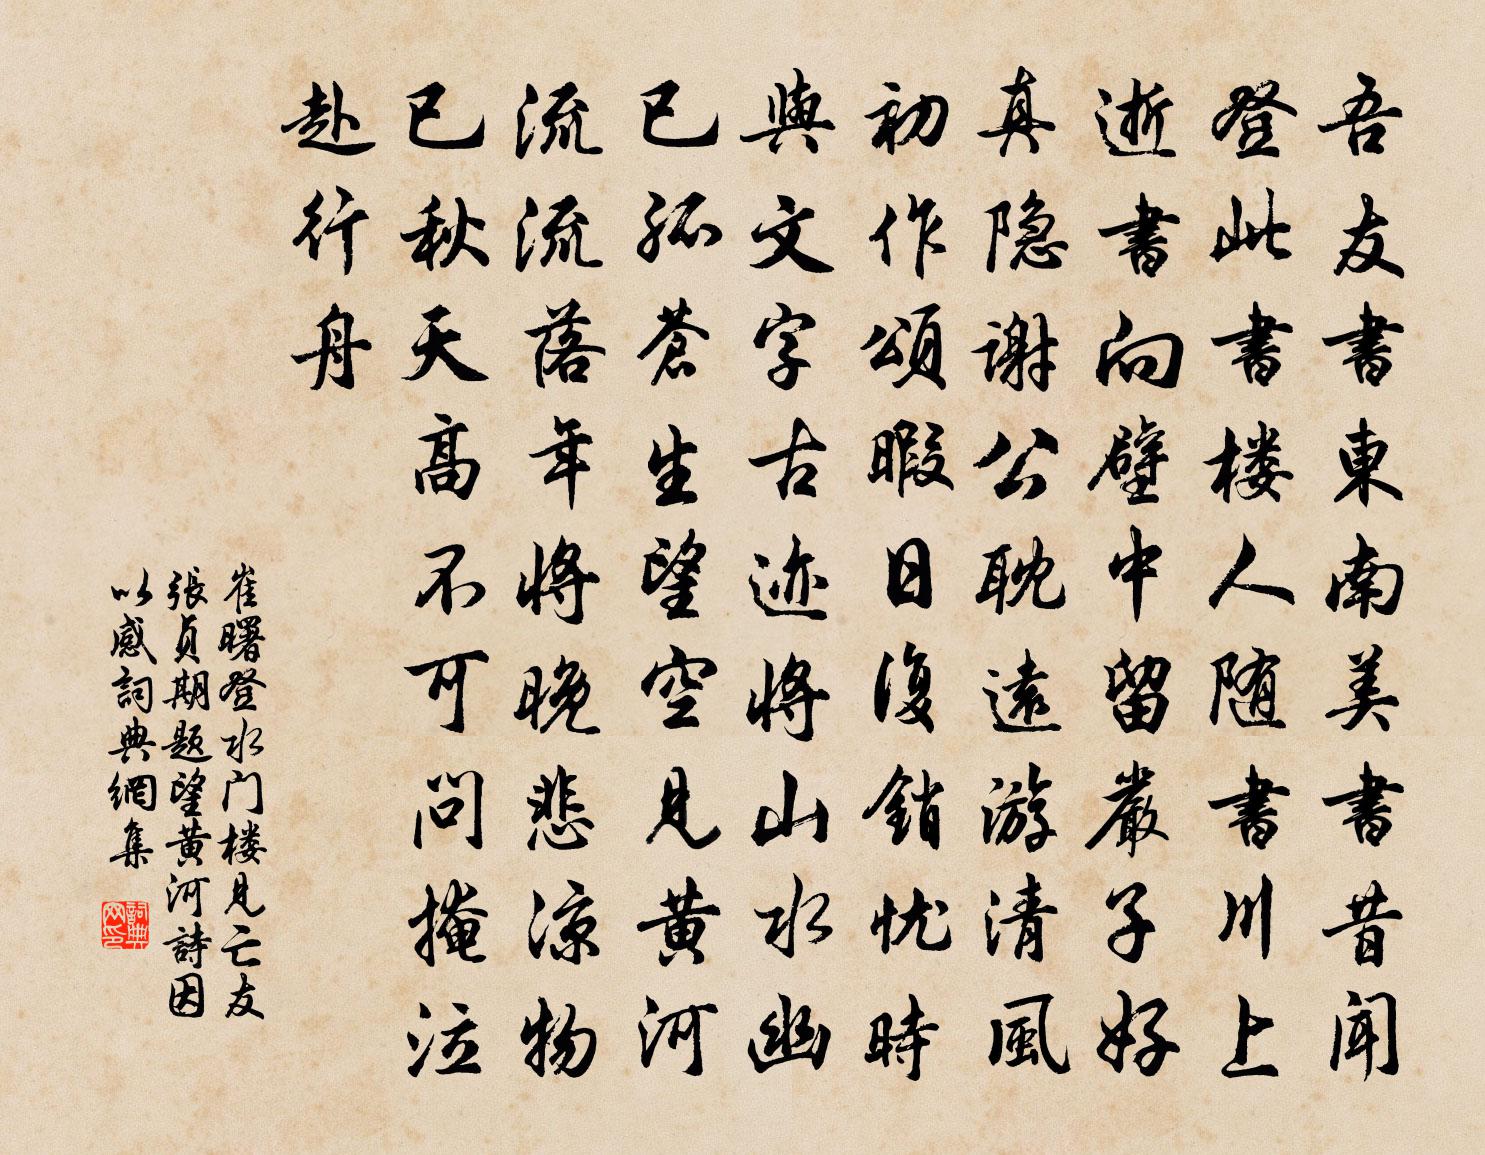 吾友書東南美書昔聞
登此書楼人随書川上
逝書向壁中留嚴子好
真隐謝公耽遠游清風
初作頌暇日復銷忧時
與文字古迹将山水幽
已孤蒼生望空見黄河
流流落年将晚悲涼物
已秋天高不可問掩泣
赴行舟
崔曙登水门楼見亡友
張貞期题望黄河詩因
以感詞典網集
詞典
网印